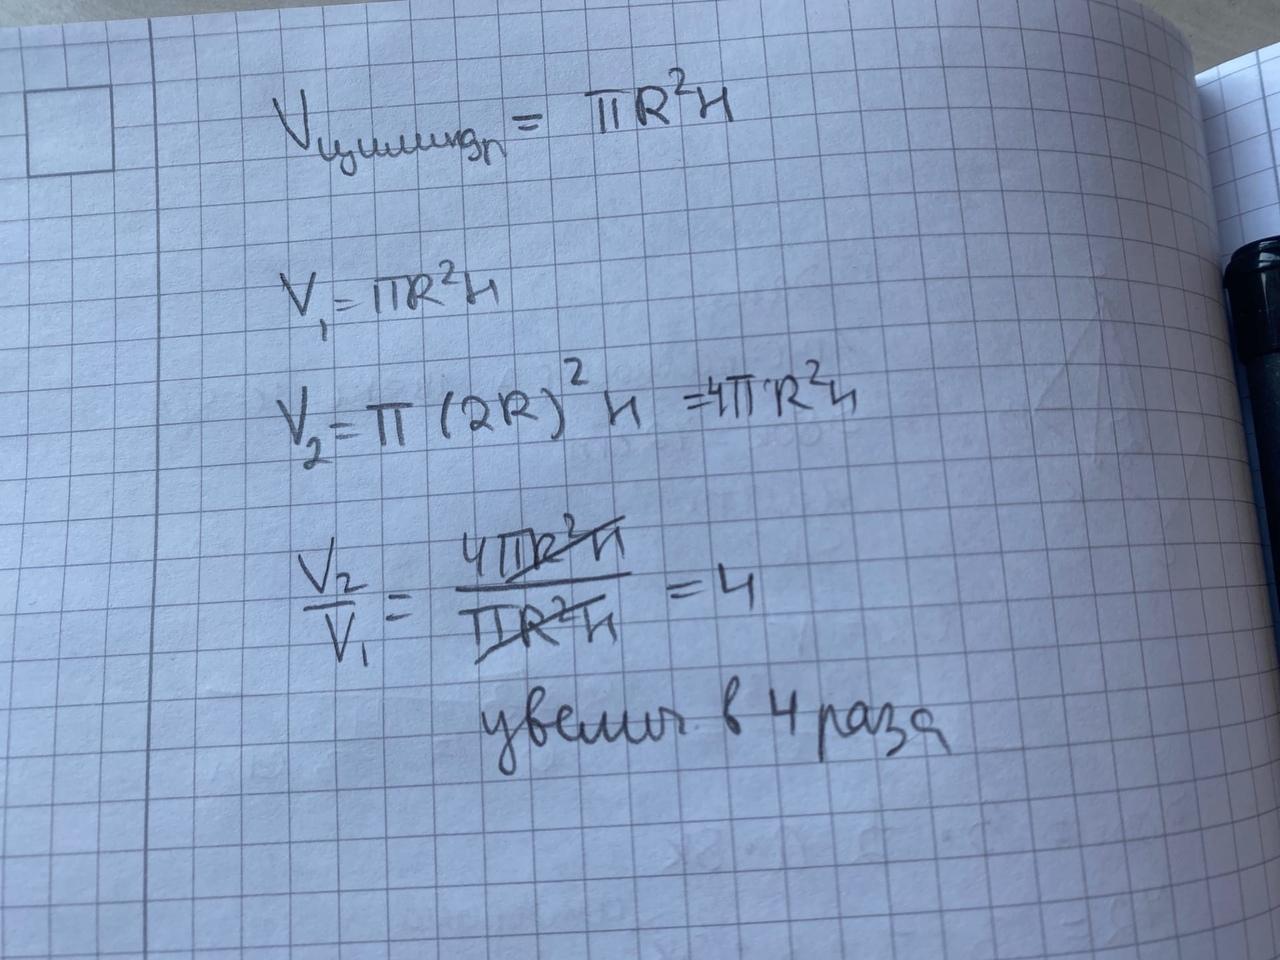 Vцилиндр = πR²H
V₁ = πR²H
V₂ = π (2R)² H = 4πR²H
V₂/V₁ = 4πR²H/πR²H = 4
увелич. в 4 раза